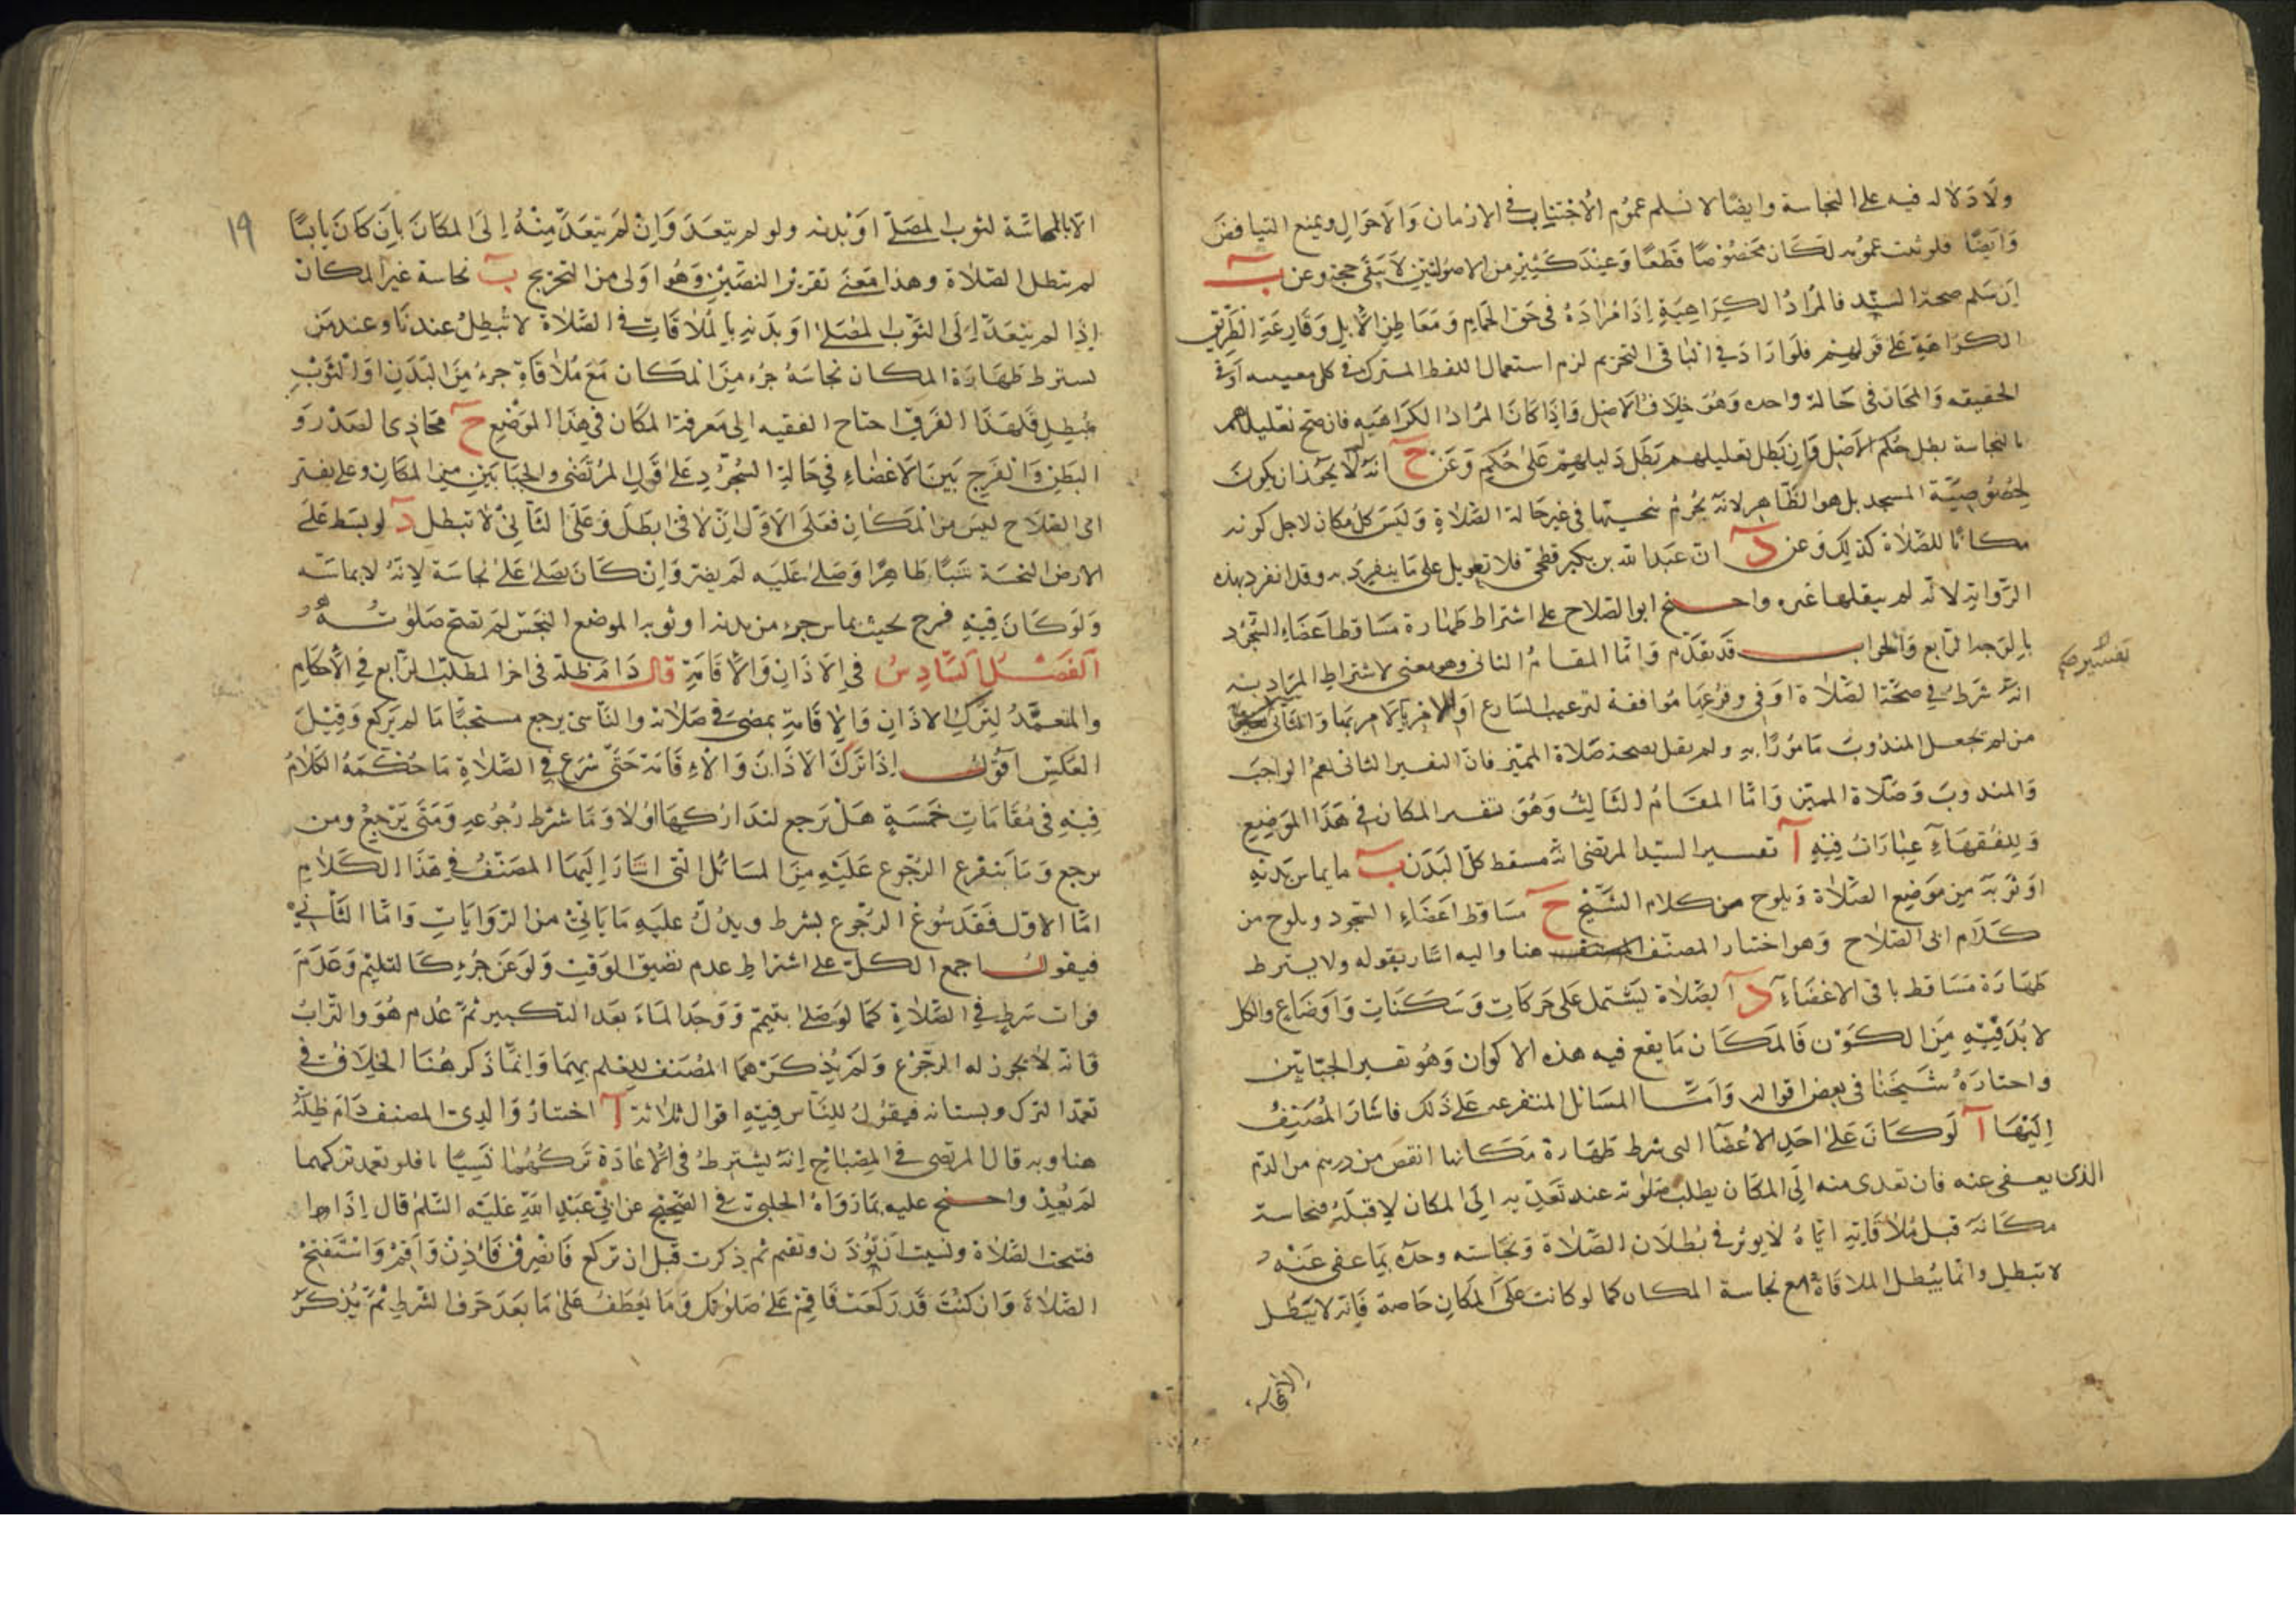 ولا دلاله فيه على النجاسة وايضا لا نسلم عموم الاجتناب في الازمان والاحوال ويمنع التنافض
وايضا فلو ثبت عمومه لكان مخصوصا قطعا وعند كثير من الاصوليين لا يبقى حجة وعن ب
ان سلم صحة السند فالمراد الكراهية اذا مراده في حق الحمام ومعاطن الابل وقارعة الطريق
الكراهية على قولهم فلو اراد في الباقى التحريم لزم استعمال اللفظ المشترك في كلى معنييه او في
الحقيقه والمجاز في حالة واحده وهو خلاف الاصل واذا كان المراد الكراهيه فان صح تعليلهم
بالنجاسة بطل حكم الاصل وان بطل تعليلهم بطل دليلهم على حكمهم وعن ح انه لم لا يجوز ان يكون
لخصوصية المسجد بل هو الظاهر لانه يحرم تنجيسها في غير حالة الصلاة وليس كل مكان لاجل كونه
مكانا للصلاة كذلك وعن د ان عبد الله بن بكير فطحى فلا تعويل على ما ينفرد به وقد انفرد بهذه
الرواية لانه لم ينقلها غيره واحتج ابو الصلاح على اشتراط طهارة مساقط اعضاء السجود
بالوجه الرابع والجواب قد تقدم واما المقام الثانى وهو معنى لاشتراط المراد به
انه شرط في صحة الصلاة او في وقوعها موافقة لترغيب الشارع او الامر بالامر بها والثانى
من لم يجعل المندوب مامورا به ولم يقل بصحة صلاة المميز فان التفسير الثانى يعم الواجب
والمندوب وصلاة المميز واما المقام الثالث وهو تفسير المكان في هذا الموضع
وللفقهاء عبارات فيه آ تفسير السيد المرتضى انه مسقط كل البدن ب ما يماس بدنه
او ثوبه من موضع الصلاة ويلوح من كلام الشيخ ح مساقط اعضاء السجود ويلوح من
كلام ابى الصلاح وهو اختيار المصنف هنا واليه اشار بقوله ولا يشترط
طهارة مساقط باقى الاعضاء د الصلاة تشتمل على حركات وسكنات واوضاع والكل
لا بد فيه من الكون فالمكان ما يقع فيه هذه الاكوان وهو تفسير الجبائيين
واختاره شيخنا في بعض اقواله واما المسائل المتفرعه على ذلك فاشار المصنف
اليها آ لو كان على احد الاعضا التى شرط طهارة مكانها انقص من درهم من الدم
الذى يعفى عنه فان تعدى منه الى المكان بطلت صلوته عند تعديه الى المكان لا قبله فنجاسة
مكانه قبل ملاقاته اياه لا يوثر في بطلان الصلاة ونجاسته وحده بما عفى عنه
لا تبطل وانما يبطل الملاقاة مع نجاسة المكان كما لو كانت على المكان خاصة فانه لا يبطل
تفسير
١٩
الا بالمماسة لثوب المصلى او بدنه ولو لم يتعد وان لم يتعد منه الى المكان بان كان يابسا
لم تبطل الصلاة وهذا معنى تقرير النصين وهو اولى من التخريج ب نجاسة غير المكان
اذا لم يتعد الى الثوب المصلى او بدنه بالملاقات في الصلاة لا تبطل عندنا وعند من
يشترط طهارة المكان نجاسة جزء من المكان مع ملاقاة جزء من البدن او الثوب
مبطل فلهذا الفرق احتاج الفقيه الى معرفة المكان في هذا الموضع ح محاذى الصدر و
البطن والفرج بين الاعضاء في حالة السجود على قول المرتضى والجبائيين من المكان وعلى تفسير
ابى الصلاح ليس من المكان فعلى الاول ان لاقى ابطل وعلى الثانى لا تبطل د لو بسط على
الارض النجسة شيئا طاهرا وصلى عليه لم يضر وان كان يصلى على نجاسة لانه لا يماسه
ولو كان فيه فرج بحيث يماس جزء من بدنه او ثوبه الموضع النجس لم تصح صلوته
الفصل السادس في الاذان والاقامة قال دام ظله في اخر المطلب الرابع في الاحكام
والمتعمد لترك الاذان والاقامة يمضى في صلاته والناسى يرجع مستحبا ما لم يركع وقيل
بالعكس اقول اذا ترك الاذان والاقامة حتى شرع في الصلاة ما حكمه الكلام
فيه في مقامات خمسة هل يرجع لتداركها اولا وما شرط رجوعه ومتى يرجع ومن
يرجع وما يتفرع الرجوع عليه من المسائل التى اشار اليها المصنف في هذا الكلام
اما الاول فقد سوغ الرجوع بشرط ويدل عليه ما ياتى من الروايات واما الثانى
فيقول اجمع الكل على اشتراط عدم تضيق الوقت ولو عن جزء كالتسليم وعدم
فوات شرط في الصلاة كما لو صلى بتيمم ووجد الماء بعد التكبير ثم عدم هو والتراب
فانه لا يجوز له الرجوع ولم يذكرهما المصنف للعلم بهما وانما ذكر هنا الخلاف في
تعمد الترك ونسيانه فيقول للناس فيه اقوال ثلاثة آ اختار والدى المصنف دام ظله
هنا وبه قال المرتضى في المصباح انه يشترط في الاعادة تركهما نسيانا فلو تعمد تركهما
لم يعد واحتج عليه بما رواه الحلبى في الصحيح عن ابى عبد الله عليه السلم قال اذا
فتحت الصلاة ونسيت ان تؤذن وتقيم ثم ذكرت قبل ان تركع فانصرف فاذن واقم واستفتح
الصلاة وان كنت قد ركعت فاتم على صلوتك وما يعطف على ما بعد حرف الشرط ثم يذكر